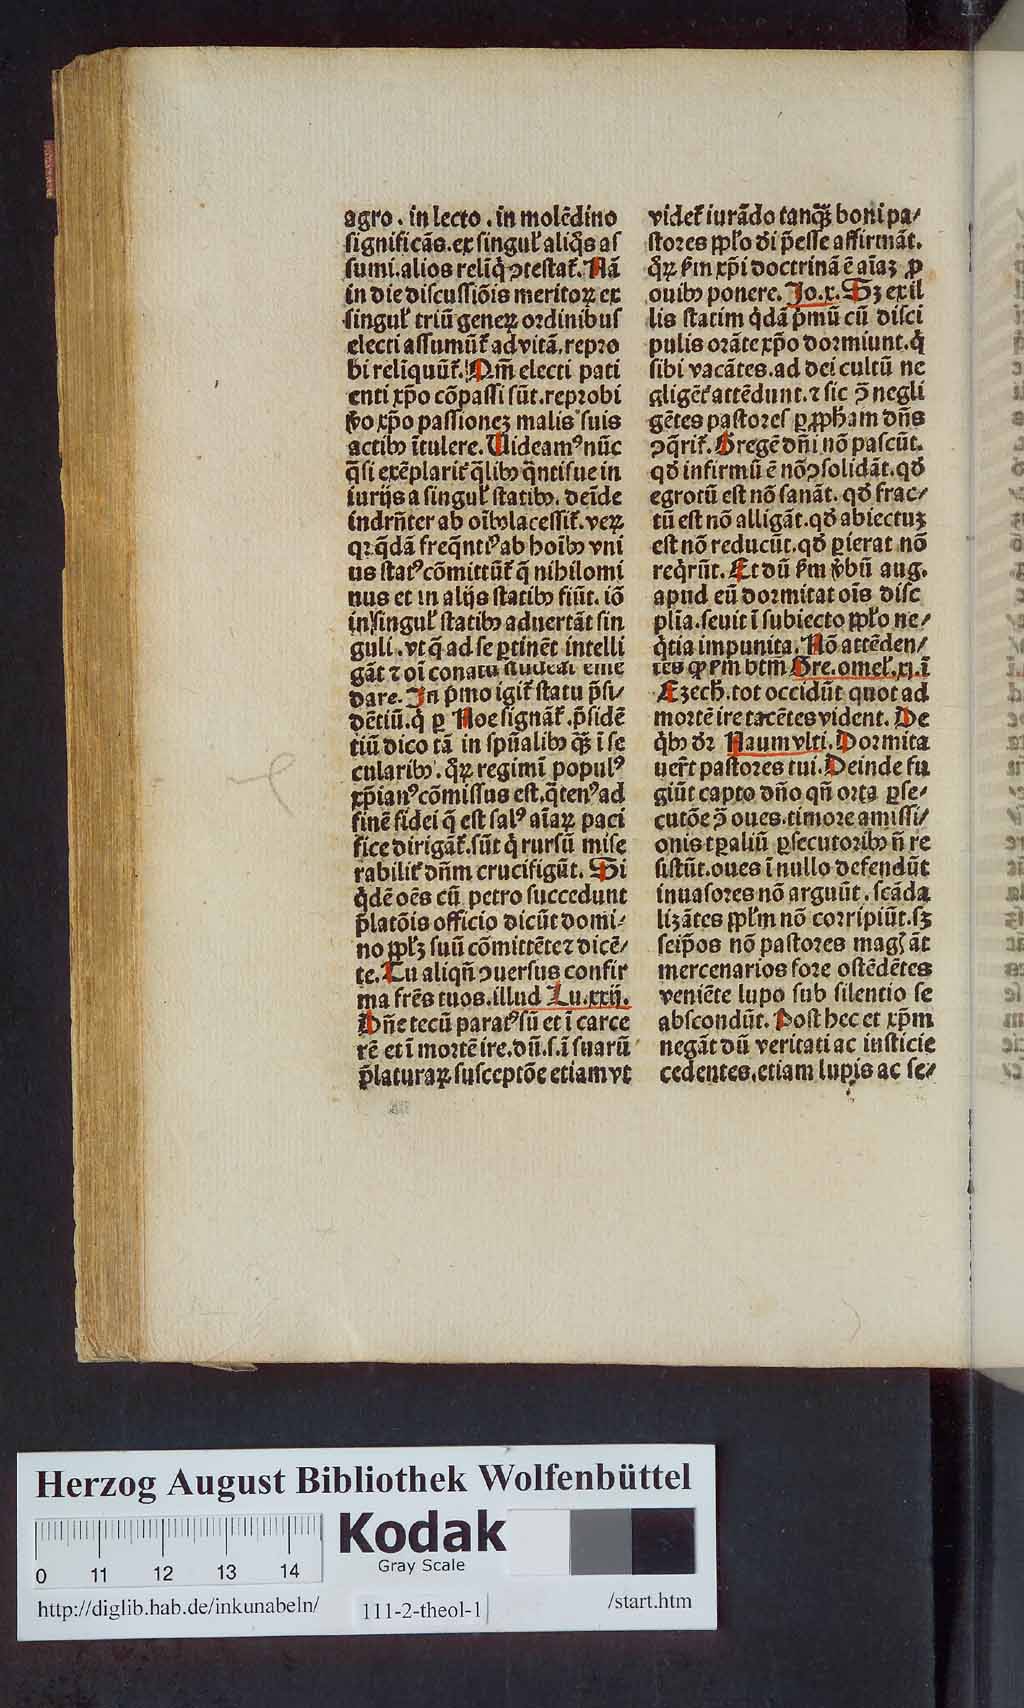 agro. in lecto. in molēdino
ſignificās. ex ſingul̕ aliq̄s aſ
ſumi. alios reliq̄ ꝯteſtat̕. Nā
in die diſcuſſiōis meritoꝝ ex
ſingul̕ triū geneꝝ ordinibuſ
electi aſſumūt̕ ad vitā. repro
bi relīquūt̕. Qm̄ electi pati
enti xp̄o cōpaſſi ſūt. reprobi
ꝟo xp̄o paſſionez malis ſuis
actibꝰ ītulere. Uideamꝰ nūc
q̄ſi exēplarit̕ q̄libꝫ q̄ntiſue in
iurijs a ſingul̕ ſtatibꝫ. deīde
indrn̄ter ab oībꝫ laceſſit̕. veꝝ
qꝛ q̄dā freq̄ntiꝰ ab hoībꝫ vni
us ſtatꝰ cōmittūt̕ q̄ nihilomi
nus et in alijs ſtatibꝫ fiūt. iō
in ſingul̕ ſtatibꝫ aduertāt ſin
guli. vt q̄ ad ſe ꝑtinēt intelli
gāt ⁊ oī conatu ſtudeāt eme
dare. In p̄mo igit̕ ſtatu p̄ſi⸗
dētiū. q̄ ꝑ Noe ſignāt̕. p̄ſidē
tiū dico tā in ſpūalibꝫ qꝫ̄ ī ſe
cularibꝫ. q̄ꝝ regimī populꝰ
xp̄ianꝰ cōmiſſus eſt. q̄tenꝰ ad
finē fidei q̄ eſt ſalꝰ aīaꝝ paci
fice dirigāt̕. ſūt q̄ rurſū miſe
rabilit̕ dn̄m crucifigūt. Si
q̄dē oēs cū petro ſuccedunt
p̄latōis officio dicūt domi⸗
no ppl̕ꝫ ſuū cōmittēte ⁊ dicē⸗
te. Tu aliqn̄ ꝯuerſus confir
ma frēs tuos. illud Lu. xxij.
Dn̄e tecū paratꝰ ſū et ī carce
rē et ī mortē ire. dū. ſ. ī ſuarū
p̄laturaꝝ ſuſceptōe etiam vt
videt̕ iurādo tanqꝫ̄ boni pa⸗
ſtores ppl̕o dī p̄eſſe affirmāt.
q̄ꝝ ẜm xp̄i doctrinā ē aīaꝫ ꝓ
ouibꝫ ponere. Jo. x. Sꝫ ex il
lis ſtatim q̄dā p̄mū cū diſci
pulis orāte xp̄o dormiunt. q̄
ſibi vacātes. ad dei cultū ne
gligēt̕ attēdunt. ⁊ ſic ꝯ̄ negli
gētes paſtores ꝑ ꝓph̄am dn̄s
ꝯq̄rit̕. Gregē dn̄i nō paſcūt.
qd̕ infirmū ē nō ꝯſolidāt. qd̕
egrotū eſt nō ſanāt. qd̕ frac⸗
tū eſt nō alligāt. qd̕ abiectuꝫ
eſt nō reducūt. qd̕ ꝑierat nō
reqͥrūt. Et dū ẜm ꝟbū aug.
apud eū dormitat oīs diſc
plīa. ſeuit ī ſubiecto ppl̕o ne⸗
q̄tia impunita. Nō attēden⸗
tes ꝙ ẜm btm̄ Gre. omel̕. xj. ī
Ezech̕. tot occidūt quot ad
mortē ire tacētes vident. De
qͥbꝫ dꝛ Naum vlti. Dormita
uer̄t paſtores tui. Deinde fu
giūt capto dn̄o qn̄ orta ꝑſe⸗
cutōe ꝯ̄ oues. timore amiſſi⸗
onis tꝑaliū ꝑſecutoribꝫ n̄ re
ſiſtūt. oues ī nullo defendūt
inuaſores nō arguūt. ſcāda
lizātes ppl̕m nō corripiūt. ſꝫ
ſeip̄os nō paſtores mag̕ āt
mercenarios fore oſtēdētes
veniēte lupo ſub ſilentio ſe
abſcondūt. Poſt hec et xp̄m
negāt dū veritati ac iuſticie
cedentes. etiam lupis ac ſe⸗
Herzog August Bibliothek Wolfenbüttel
Kodak
Gray Scale
0 11 12 13 14
http://diglib.hab.de/inkunabeln/
111-2-theol-1
/start.htm